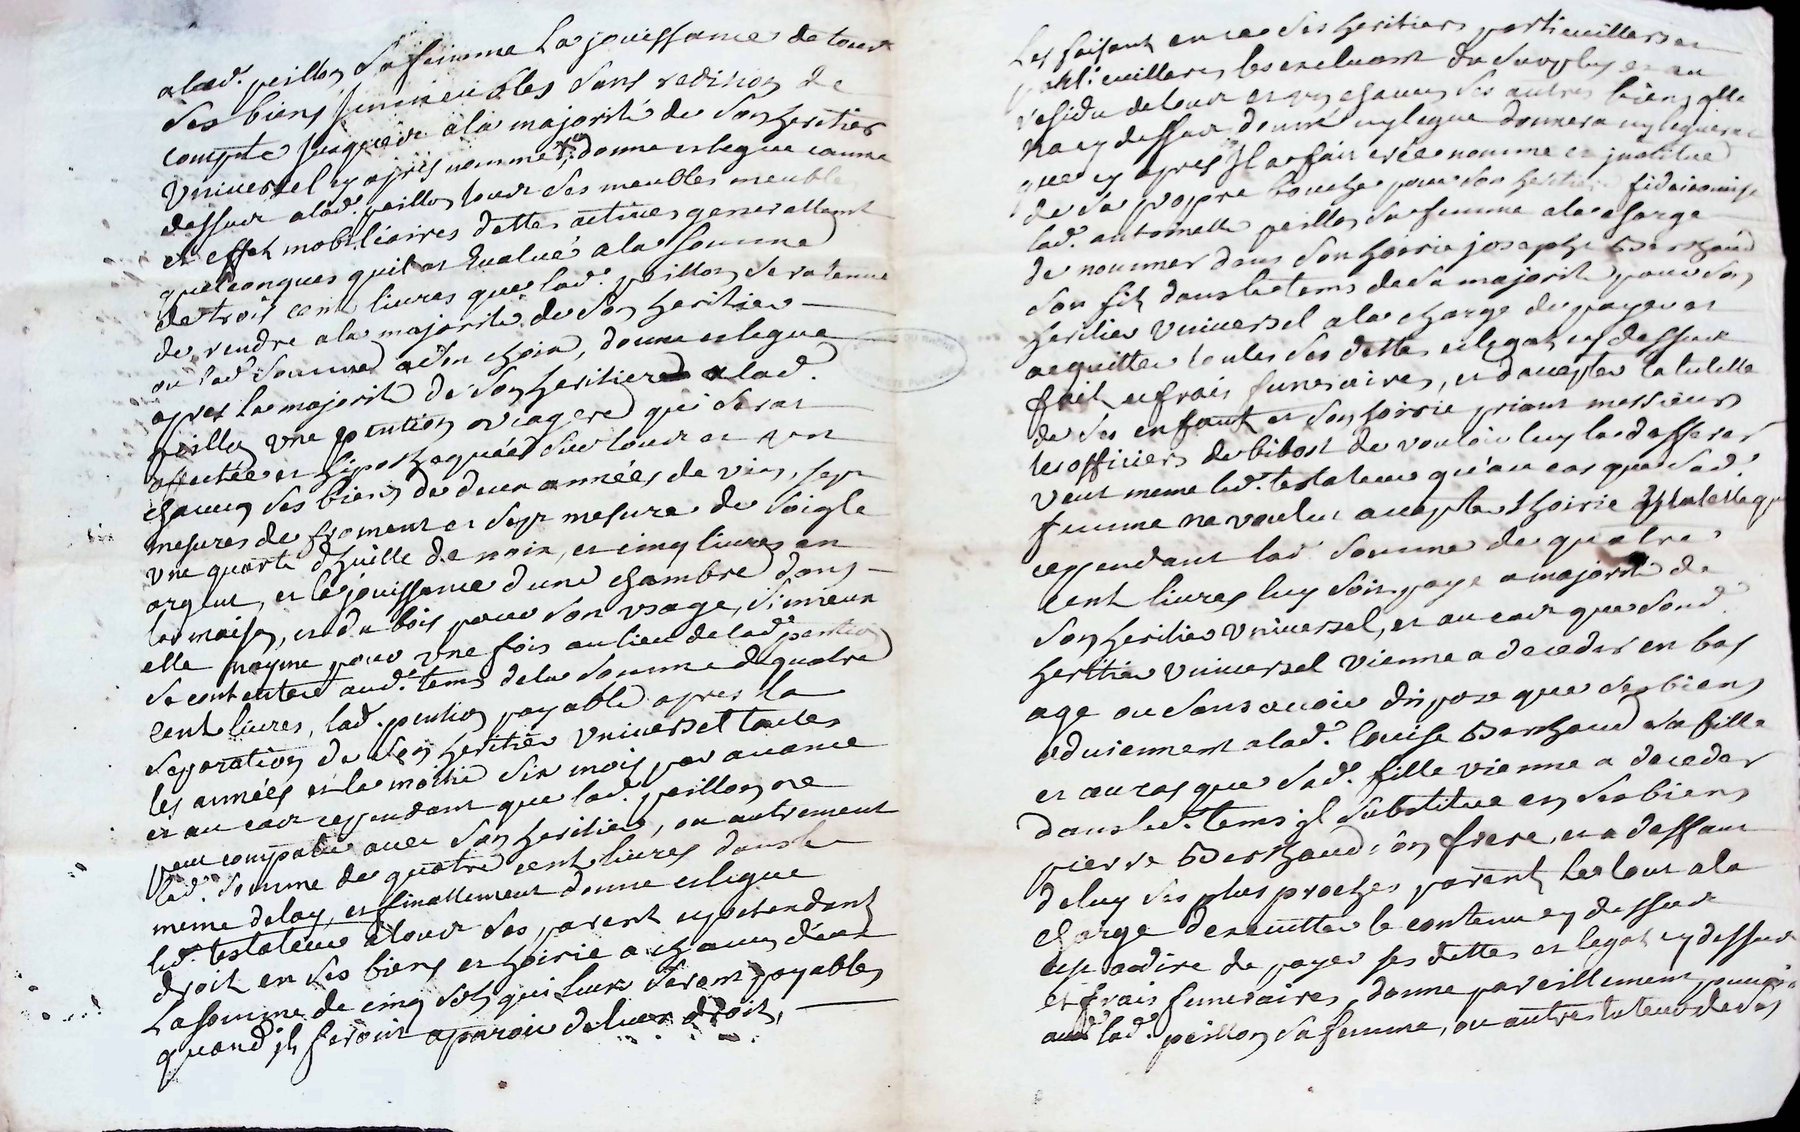 alad.e peillon Sa femme La jouissance de tous
Ses biens Immeubles Sans redition de
compte Jusques a la majorité de Son heritier
Universel cy apres nommé, donne et legue comme
dessus a lad.e peillon tous Ses meubles meublants
et effets mobiliaires dettes actives generallement
quelconques quil a Evalué a la Somme
de trois cent livres que lad.e peillon Sera tenue
de rendre a la majorité de Son heritier
ou lad.e Somme a Son choix, donne et legue
apres la majorité de Son heritier a lad.e
peillon une pention viagere qui Sera
affectée et hipothequée Sur tous et un
chacun Ses biens de deux années de vin, Sept
mesures de froment et Sept mesure de Soigle
une quarte d'huille de noix, et cinq livres en
argent, et la jouissance d'une chambre dans
la maison, et du bois pour Son usage, Si mieux
elle n'ayme pour une fois au lieu de lad.e pention
Se contenter aud.t tems de la Somme de quatre
Cent livres, lad.e pention payable apres la
Separation de Son heritier Universel toutes
les années et la moitié Six mois par avance
et au cas cependant que lad.e peillon ne
peut compatir avec Son heritier, ou autrement
lad.e Somme de quatre cent livres dans le
meme delay, et finallement donne et legue
led.t testateur a tous Ses parents cy pretendants
droit en Ses biens et hoirie a chacun d'eux
La Somme de cinq Sols qui leurs Seront payables
quand ils feront aparoir de leur droit,
Les faisant en ce Ses heritiers particulliers et
particullieres les excluant du Surplus et au
residu de tous et un chacun Ses autres biens qu'elle
n'a cy dessus donné ny legué donnera ny leguera
que cy apres Il a fait créé nommé et institué
de Sa propre bouche pour Son heritiere fideicommise
lad.e antoinette peillon Sa femme a la charge
de nommer dans Son hoirie joseph Berthaud
Son fils dans le tems de Sa majorité pour Son
heritier Universel a la charge de payer et
acquitter toutes Ses dettes et legats cy dessus
faits et frais funeraires, et d'accepter la tutelle
de Ses enfants et Son hoirie priant messieurs
les officiers de bibost de vouloir luy la defferer
veut meme led.t testateur qu'au cas que Sad.e
femme ne voulut accepter l'hoirie et tutelle que
cependant lad.e Somme de quatre
cent livres luy Soit paye a majorité de
Son heritier Universel, et au cas que Sond.t
heritier Universel vienne a deceder en bas
age ou Sans avoir disposé que Ses biens
adviennent a lad.e louise Berthaud Sa fille
et au cas que Sad.e fille vienne a deceder
dans led.t tems il Substitue en Ses biens
pierre Berthaud Son frere, et a deffaut
de luy Ses plus proches parents Le tout a la
charge d'executter le contenu cy dessus
c'est a dire de payer Ses dettes et legats cy dessus
et frais funeraires, donne pareillement pouvoir
a lad.e peillon Sa femme, ou autres tuteurs de Ses